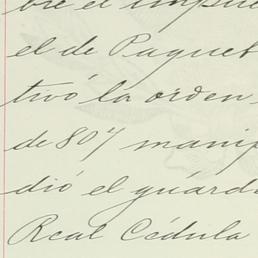 bre el impue
el de Paquet
tivó la orden
de 807 manif
dió el guard
Real Cédula